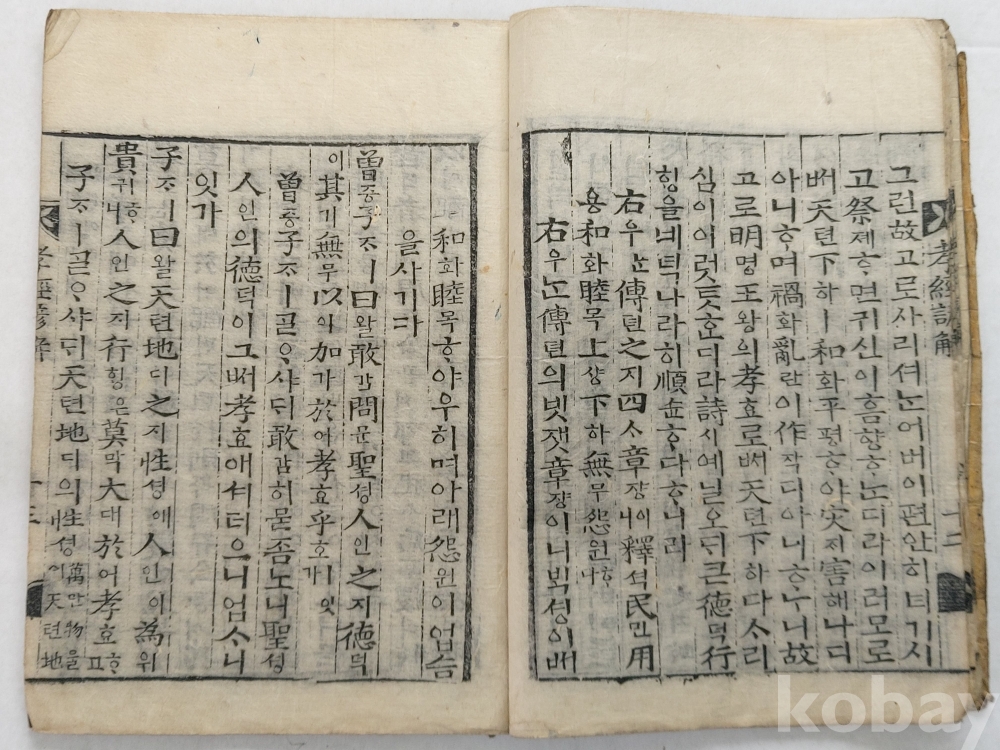 그런故고로사리셔ᄂᆞᆫ어버이편안히티기시
고祭졔ᄒᆞ면귀신이흠향ᄒᆞᄂᆞᆫ디라이러모로
ᄡᅥ天텬下하ㅣ和화平평ᄒᆞ야灾ᄌᆡ害해나디
아니ᄒᆞ며禍화亂란이作작디아니ᄒᆞᄂᆞ니故
고로明명王왕의孝효로ᄡᅥ天텬下하다ᄉᆞ리
심이이러ᄐᆞᆺᄒᆞᆫ디라詩시예닐오ᄃᆡ큰德덕行
ᄒᆡᆼ을네녁나라히順슌ᄒᆞ다ᄒᆞ니라
右우ᄂᆞᆫ傳뎐之지四ᄉᆞ章쟝이니釋셕民민用
용和화睦목上샹下하無무怨원
右우ᄂᆞᆫ傳뎐의넷잿章쟝이니ᄇᆡᆨ셩이ᄡᅥ
孝經諺解
十二
和화睦목ᄒᆞ야우히며아래怨원이업슴
을사기다
曾증子ᄌᆞㅣ曰왈敢감問문聖셩人인之지德덕
이其기無무以이加가於어孝효乎호ㅣ잇가
曾증子ᄌᆞㅣᄀᆞᆯᄋᆞ샤ᄃᆡ敢감히묻ᄌᆞᆸ노니聖셩
人인의德덕이그ᄡᅥ孝효애셔더으니업ᄉᆞ니
잇가
子ᄌᆞㅣ曰왈天텬地디之지性셩애人인이為위
貴귀ᄒᆞ니人인之지行ᄒᆡᆼ은莫막大대於어孝효ᄒᆞ고
子ᄌᆞㅣᄀᆞᆯᄋᆞ샤ᄃᆡ天텬地디의性셩萬만物물을셩이天텬地
孝經諺解
十三
kobay